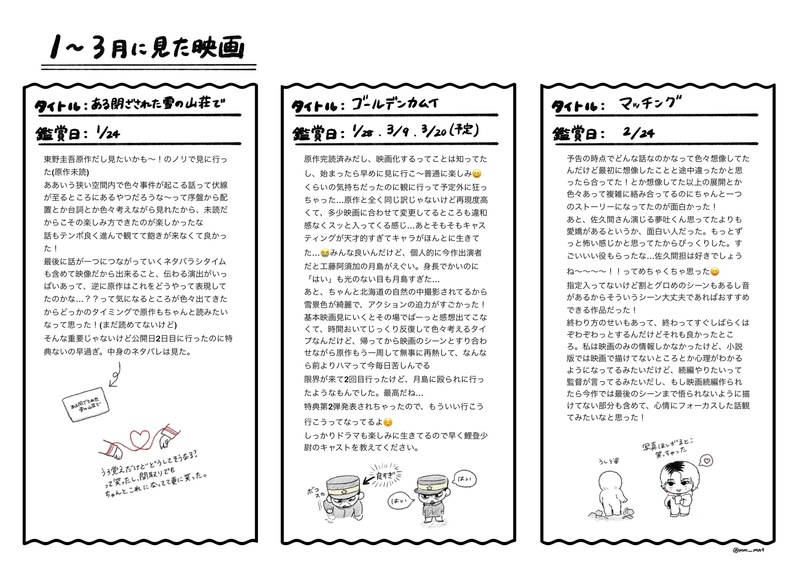 1～3月に見た映画
タイトル：ある閉ざされた雪の山荘で
鑑賞日：1/24
東野圭吾原作だし見たいかも〜！のノリで見に行っ
た(原作未読)
ああいう狭い空間内で色々事件が起こる話って伏線
が至るところにあるやつだろうな〜って序盤から配
置とか台詞とか色々考えながら見れたから、未読だ
からこその楽しみ方できたのが楽しかったな
話もテンポ良く進んで観てて飽きが来なくて良かっ
た！
最後に話が一つにつながっていくネタバラシタイム
も含めて映像だから出来ること、伝わる演出がいっ
ぱいあって、逆に原作はこれをどうやって表現して
たのかな…？？って気になるところが色々出てきた
からどっかのタイミングで原作もちゃんと読みたい
なって思った！(まだ読めてないけど)
そんな重要じゃないけど公開日2日目に行ったのに特
典ないの早過ぎ。中身のネタバレは見た。
ある閉ざされた
雪の山荘で
うろ覚えだけどどうしてそうなる?
って笑ったし、間取りでも
ちゃんとこれになってて更に笑った。
タイトル：ゴールデンカムイ
鑑賞日：1/28.3/9.3/20(予定)
原作完読済みだし、映画化するってことは知ってた
し、始まったら早めに見に行こ〜普通に楽しみ😄
くらいの気持ちだったのに観に行って予定外に狂っ
ちゃった…原作と全く同じ訳じゃないけど再現度高
くて、多少映画に合わせて変更してるところも違和
感なくスッと入ってくる感じ…あとそもそもキャス
ティングが天才的すぎてキャラがほんとに生きて
た…😭みんな良いんだけど、個人的に今作出演者
だと工藤阿須加の月島がえぐい。身長でかいのに
「はい」も光のない目も月島すぎた…
あと、ちゃんと北海道の自然の中撮影されてるから
雪景色が綺麗で、アクションの迫力がすごかった！
基本映画見にいくとその場でばーっと感想出てこな
くて、時間おいてじっくり反復して色々考えるタイ
プなんだけど、帰ってから映画のシーンとすり合わ
せながら原作もう一周して無事に再熱して、なんな
ら前よりハマって今毎日苦しんでる
限界が来て2回目行ったけど、月島に殴られに行っ
たようなもんでした。最高だね…
特典第2弾発表されちゃったので、もういい行こう
行こうってなってるよ☺️
しっかりドラマも楽しみに生きてるので早く鯉登少
尉のキャストを教えてください。
ボコスカ
良すぎ
はい
はい
タイトル：マッチング
鑑賞日：2/24
予告の時点でどんな話なのかなって色々想像してた
んだけど最初に想像したことと途中違ったかと思
ったら合ってた！とか想像してた以上の展開とか
色々あって複雑に絡み合ってるのにちゃんと一つ
のストーリーになってたのが面白かった！
あと、佐久間さん演じる夢吐くん思ってたよりも
愛嬌があるというか、面白い人だった。もっとず
っと怖い感じかと思ってたからびっくりした。す
ごいいい役もらったな…佐久間担は好きでしょう
ね〜〜〜〜！！ってめちゃくちゃ思った😄
指定入ってないけど割とグロめのシーンもあるし音
があるからそういうシーン大丈夫であればおすすめ
できる作品だった！
終わり方のせいもあって、終わってすぐしばらくは
ぞわぞわっとするんだけどそれも良かったとこ
ろ。私は映画のみの情報しかなかったけど、小説
版では映画で描けてないところとか心理がわかる
ようになってるみたいだけど、続編やりたいって
監督が言ってるみたいだし、もし映画続編作られ
たら今作では最後のシーンまで悟られないように描
けてない部分も含めて、心情にフォーカスした話観
てみたいなと思った！
うしろ姿
写真はしゃぎるとこ
笑っちゃった